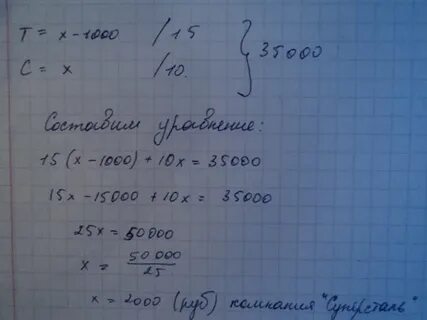 T = x - 1000 / 15
C = x / 10. } 35000
Составим уравнение:
15(x - 1000) + 10x = 35000
15x - 15000 + 10x = 35000
25x = 50000
x = 50 000 / 25
x = 2000 (руб) компания "Суперсталь"